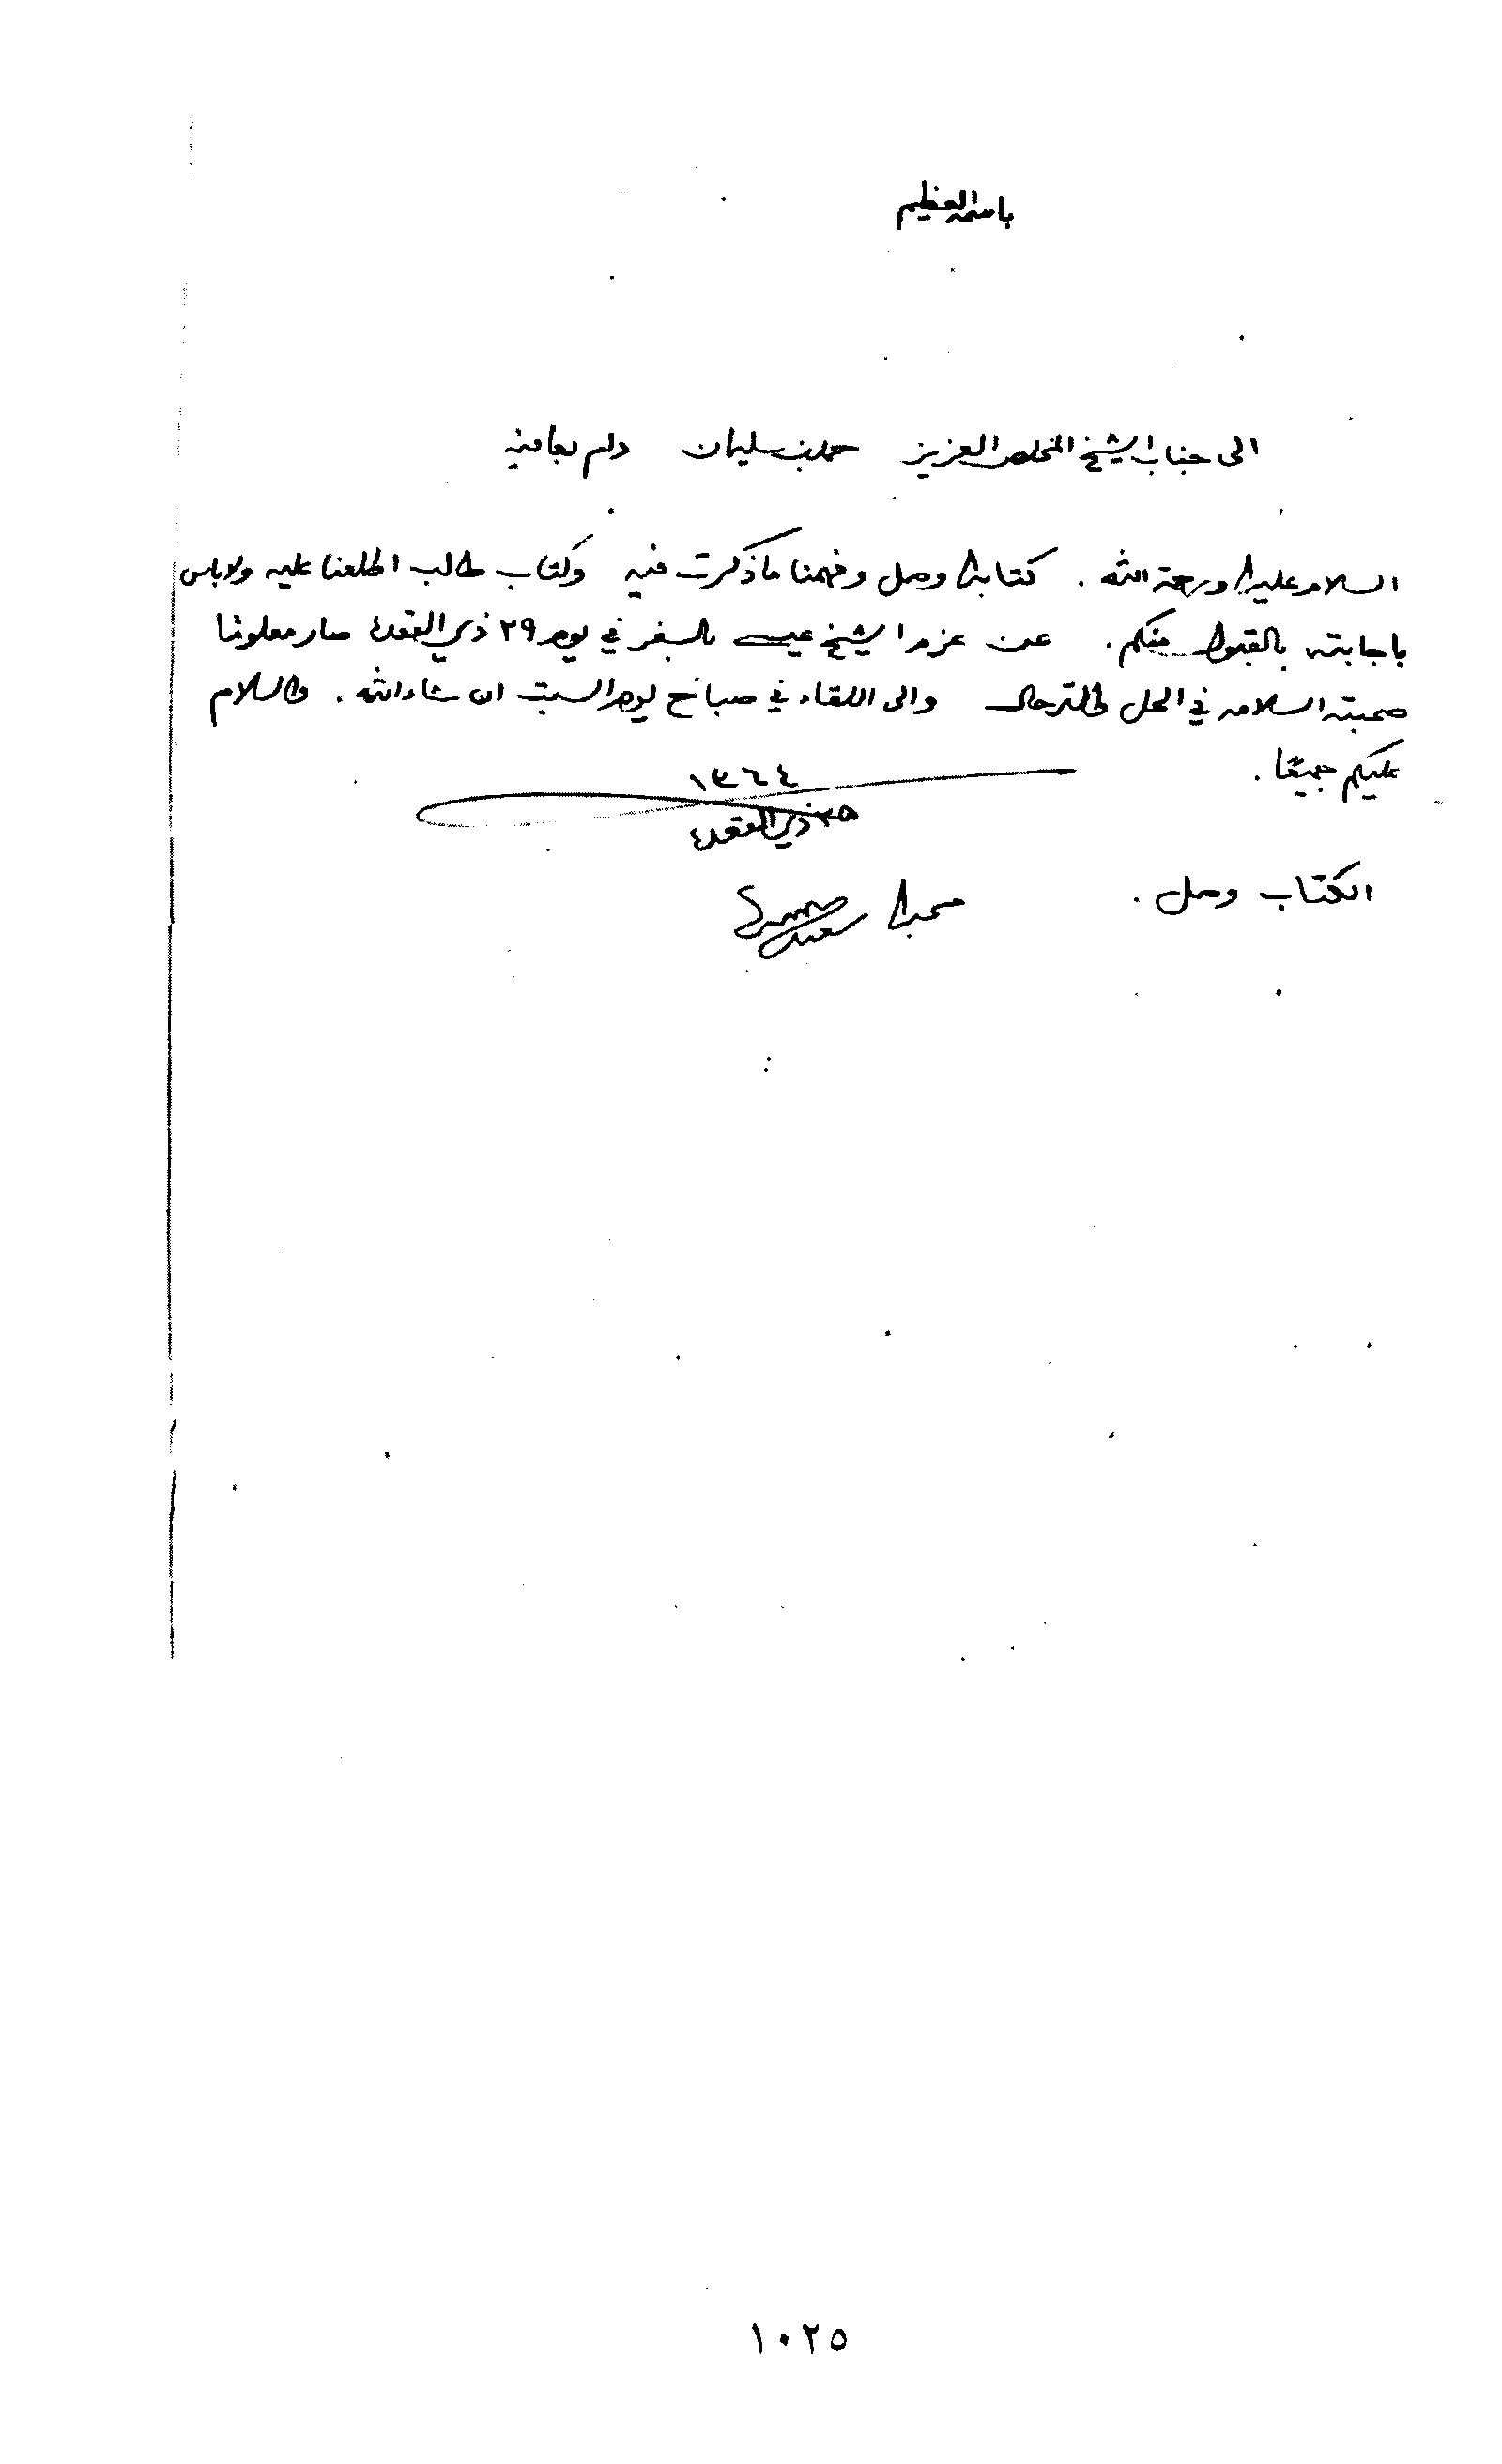 باسمه العظيم
الى جناب الشيخ المخلص العزيز حمد بن سليمان دام بعافيه
السلام عليك ورحمة الله . كتابك وصل وفهمنا ما ذكرت فيه وكتاب طالب اطلعنا عليه ولا باس
باجابته بالقبول منكم . عن عزم الشيخ عيسى بالسفر في يوم ٢٩ ذي القعدة صار معلومًا
صحبته السلامه في الحل والترحال والى اللقاء في صباح يوم السبت ان شاء الله . والسلام
عليكم جميعًا .
١٣٦٤
٢٥ ذي القعدة
الكتاب وصل .
محبك
سعيد
١٠٢٥